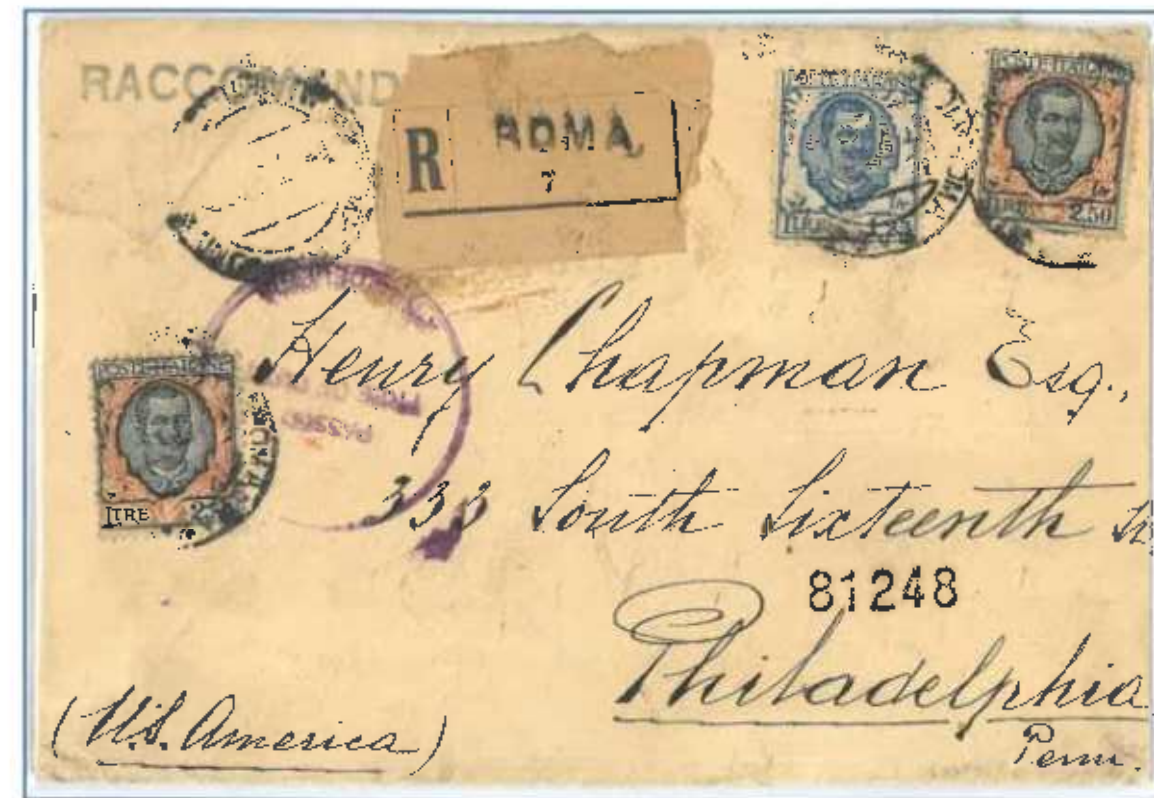 RACCOMAND
R ROMA
7
POSTE ITALIANE
LIRE 1,25
POSTE ITALIANE
LIRE 2.50
POSTE ITALIANE
LIRE
PASSED
Henry Chapman Esq.,
333 South Sixteenth St
81248
Philadelphia
Penn.
(U.S. America)